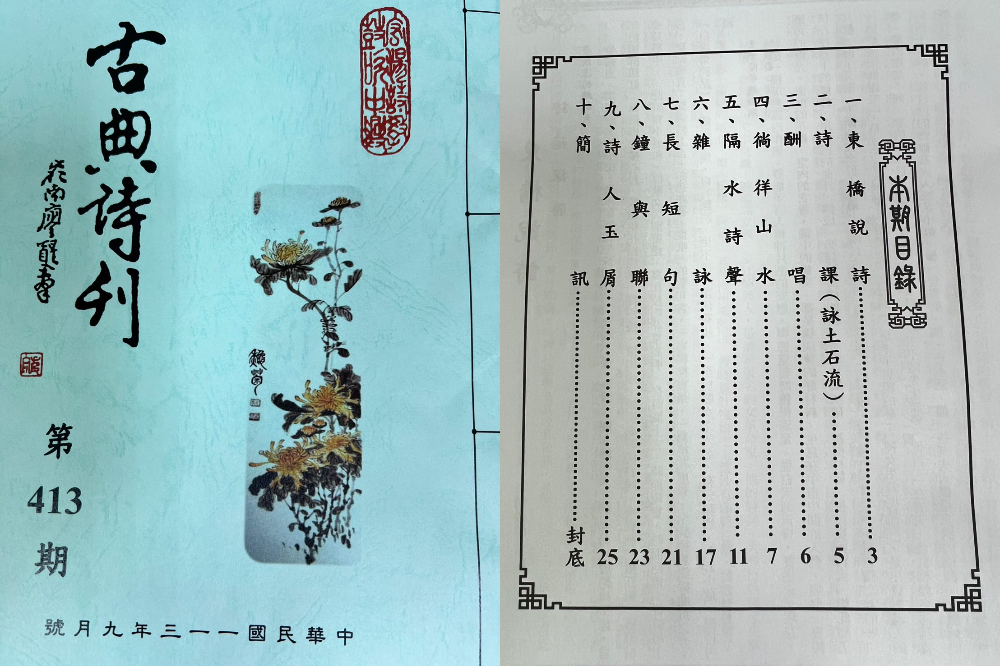 古典詩刊
嶺南廖從雲
第
413
期
中華民國一一三年九月號
本期目錄
一、東橋說詩……3
二、詩課(詠土石流)……5
三、酬唱……6
四、徜徉山水……7
五、隔水詩聲……11
六、雜詠……17
七、長短句……21
八、鐘與聯……23
九、詩人玉屑……25
十、簡訊……封底